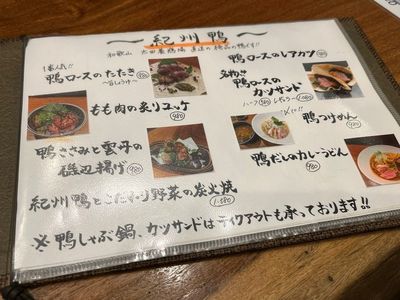 ～紀州鴨～
和歌山 太田養鶏場 直送の極品の鴨です!!
1番人気!!
鴨ロースのたたき
鴨ロースのレアカツ
名物!!
鴨ロースのカツサンド
ハーフ 580 レギュラー 1,080
もも肉の炙りユッケ
980
〆に!!
鴨つけめん
920
鴨ささみと雲丹の
磯辺揚げ 980
鴨だしのカレーうどん
980
紀州鴨とこだわり野菜の炭火焼
1,580
※鴨しゃぶ鍋、カツサンドはテイクアウトも承っております!!